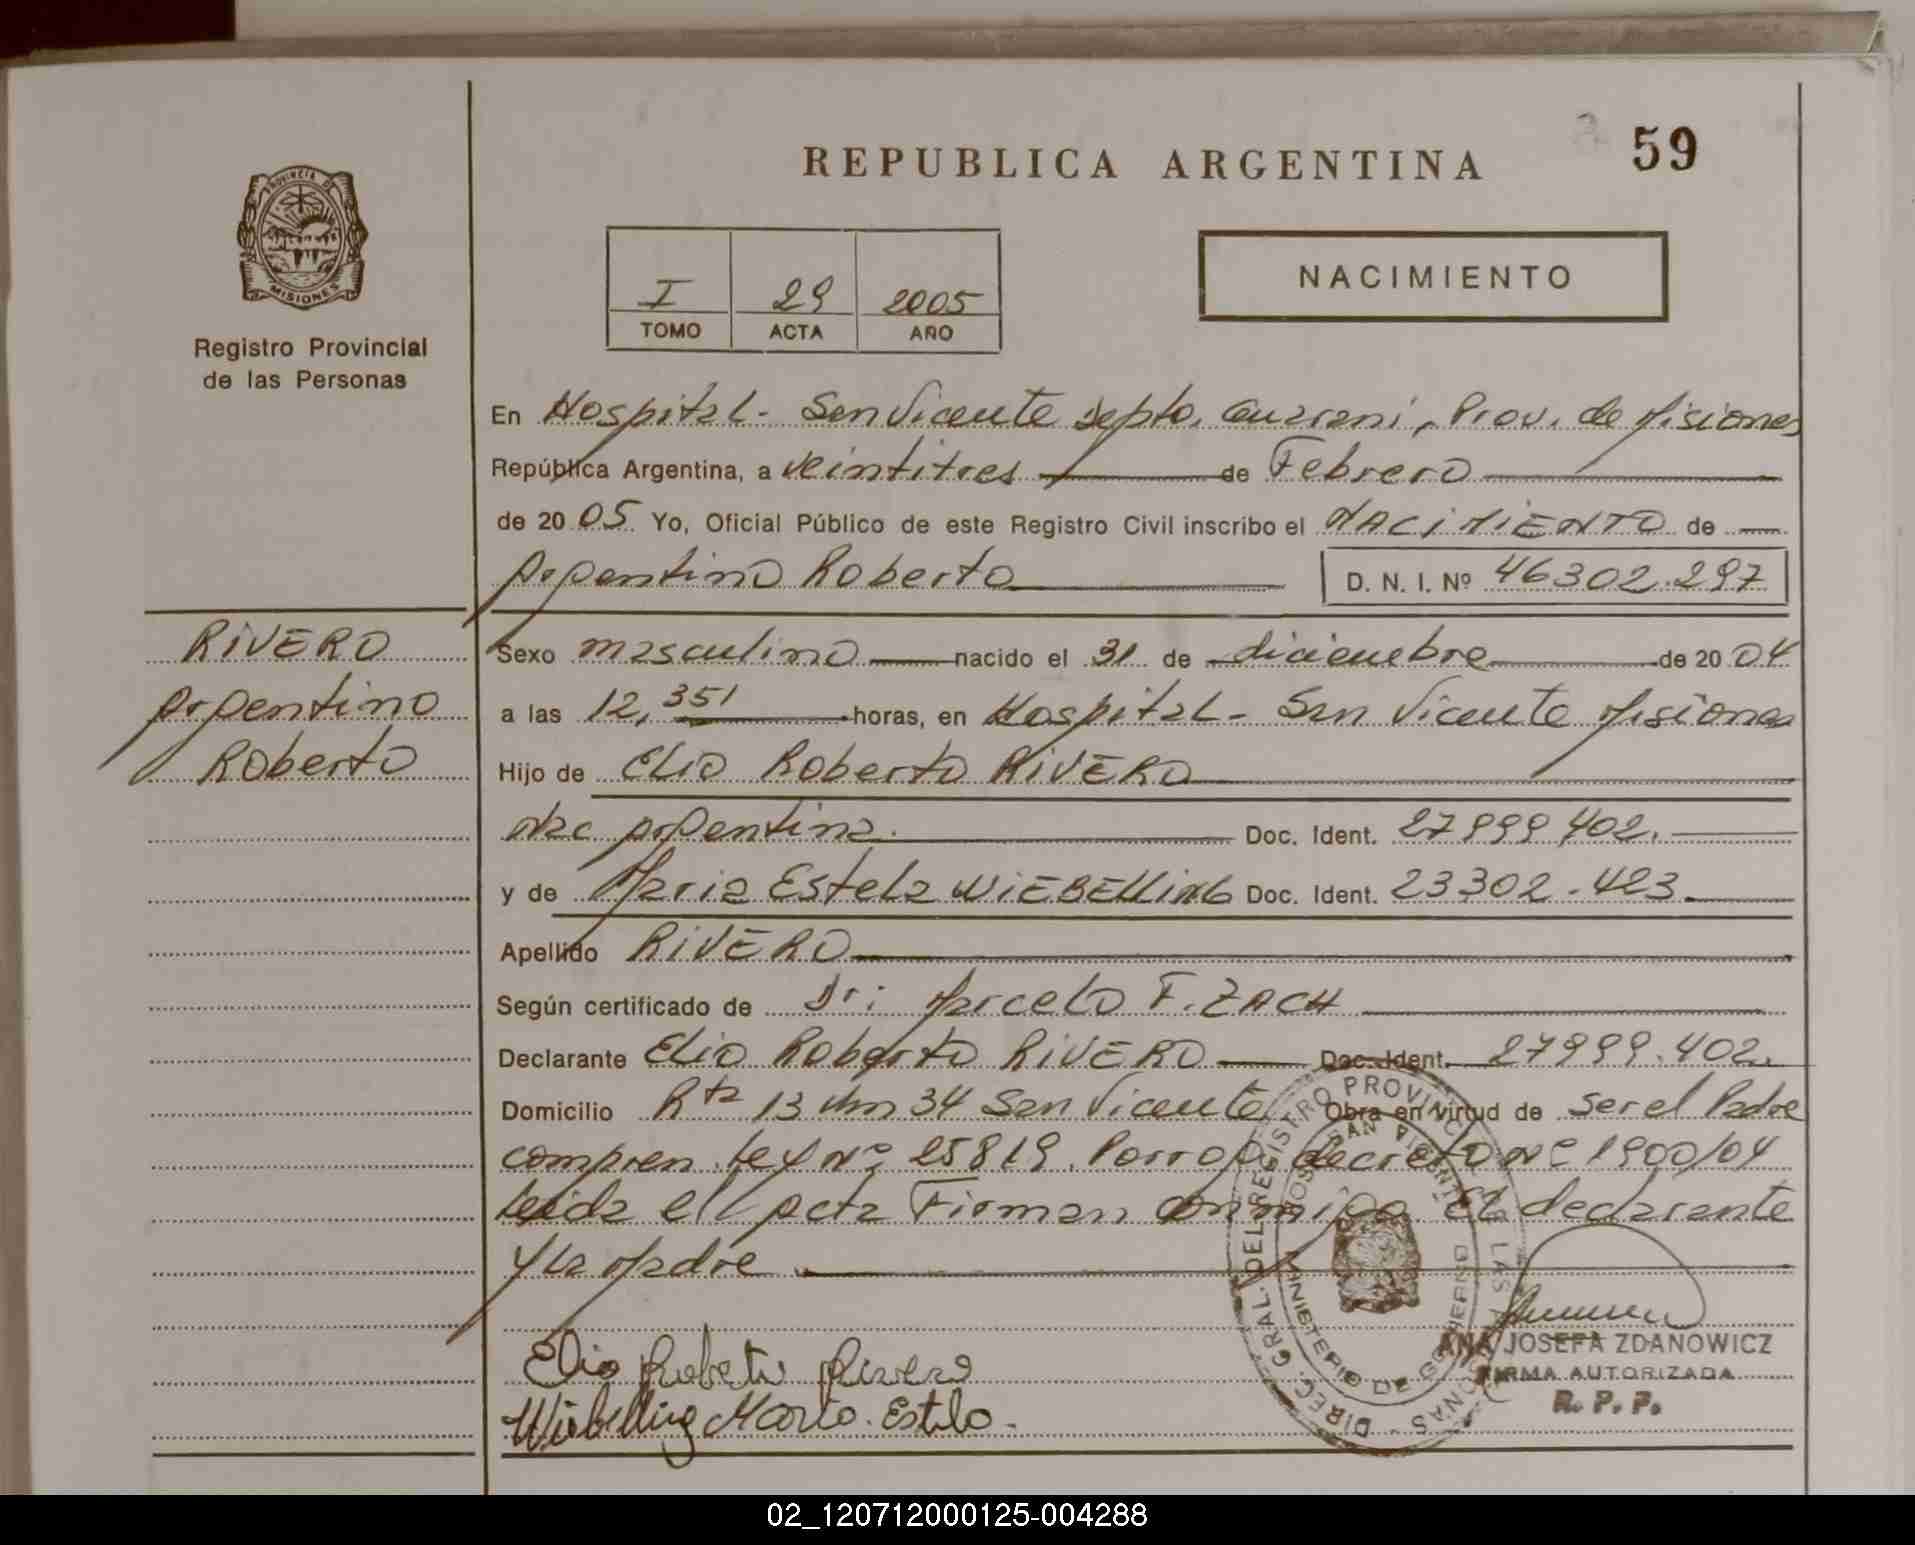 REPUBLICA ARGENTINA
59
PROVINCIA DE
MISIONES
Registro Provincial
de las Personas
I 29 2005
TOMO ACTA AÑO
NACIMIENTO
En Hospital - San Vicente Depto. Guarani, Prov. de Misiones
República Argentina, a veintitres de Febrero
de 2005 Yo, Oficial Público de este Registro Civil inscribo el NACIMIENTO de
Argentino Roberto D. N. I. Nº 46302.297
RIVERO
Argentino
Roberto
Sexo masculino nacido el 31 de diciembre de 2004
a las 12,351 horas, en Hospital - San Vicente Misiones
Hijo de Elio Roberto RIVERO
Nac Argentina. Doc. Ident. 27999402.
y de Maria Estela WIEBELLING Doc. Ident. 23302.423.
Apellido RIVERO
Según certificado de Dr: Marcelo F. ZACH
Declarante Elio Roberto RIVERO Doc. Ident. 27999.402.
Domicilio Rta 13 Km 34 San Vicente Obra en virtud de ser el Padre
compren. Ley Nº 25819. Porrog. decreto Nº 1900/04
Leida el acta Firman conmigo El declarante
y la Madre
Elio Roberto Rivero
Wiebelling Maria. Estela.
DIREC. GRAL. DEL REGISTRO PROVINCIAL DE LAS PERSONAS
HOSP. SAN VICENTE
MINISTERIO DE GOBIERNO
ANA JOSEFA ZDANOWICZ
FIRMA AUTORIZADA
R. P. P.
02_120712000125-004288